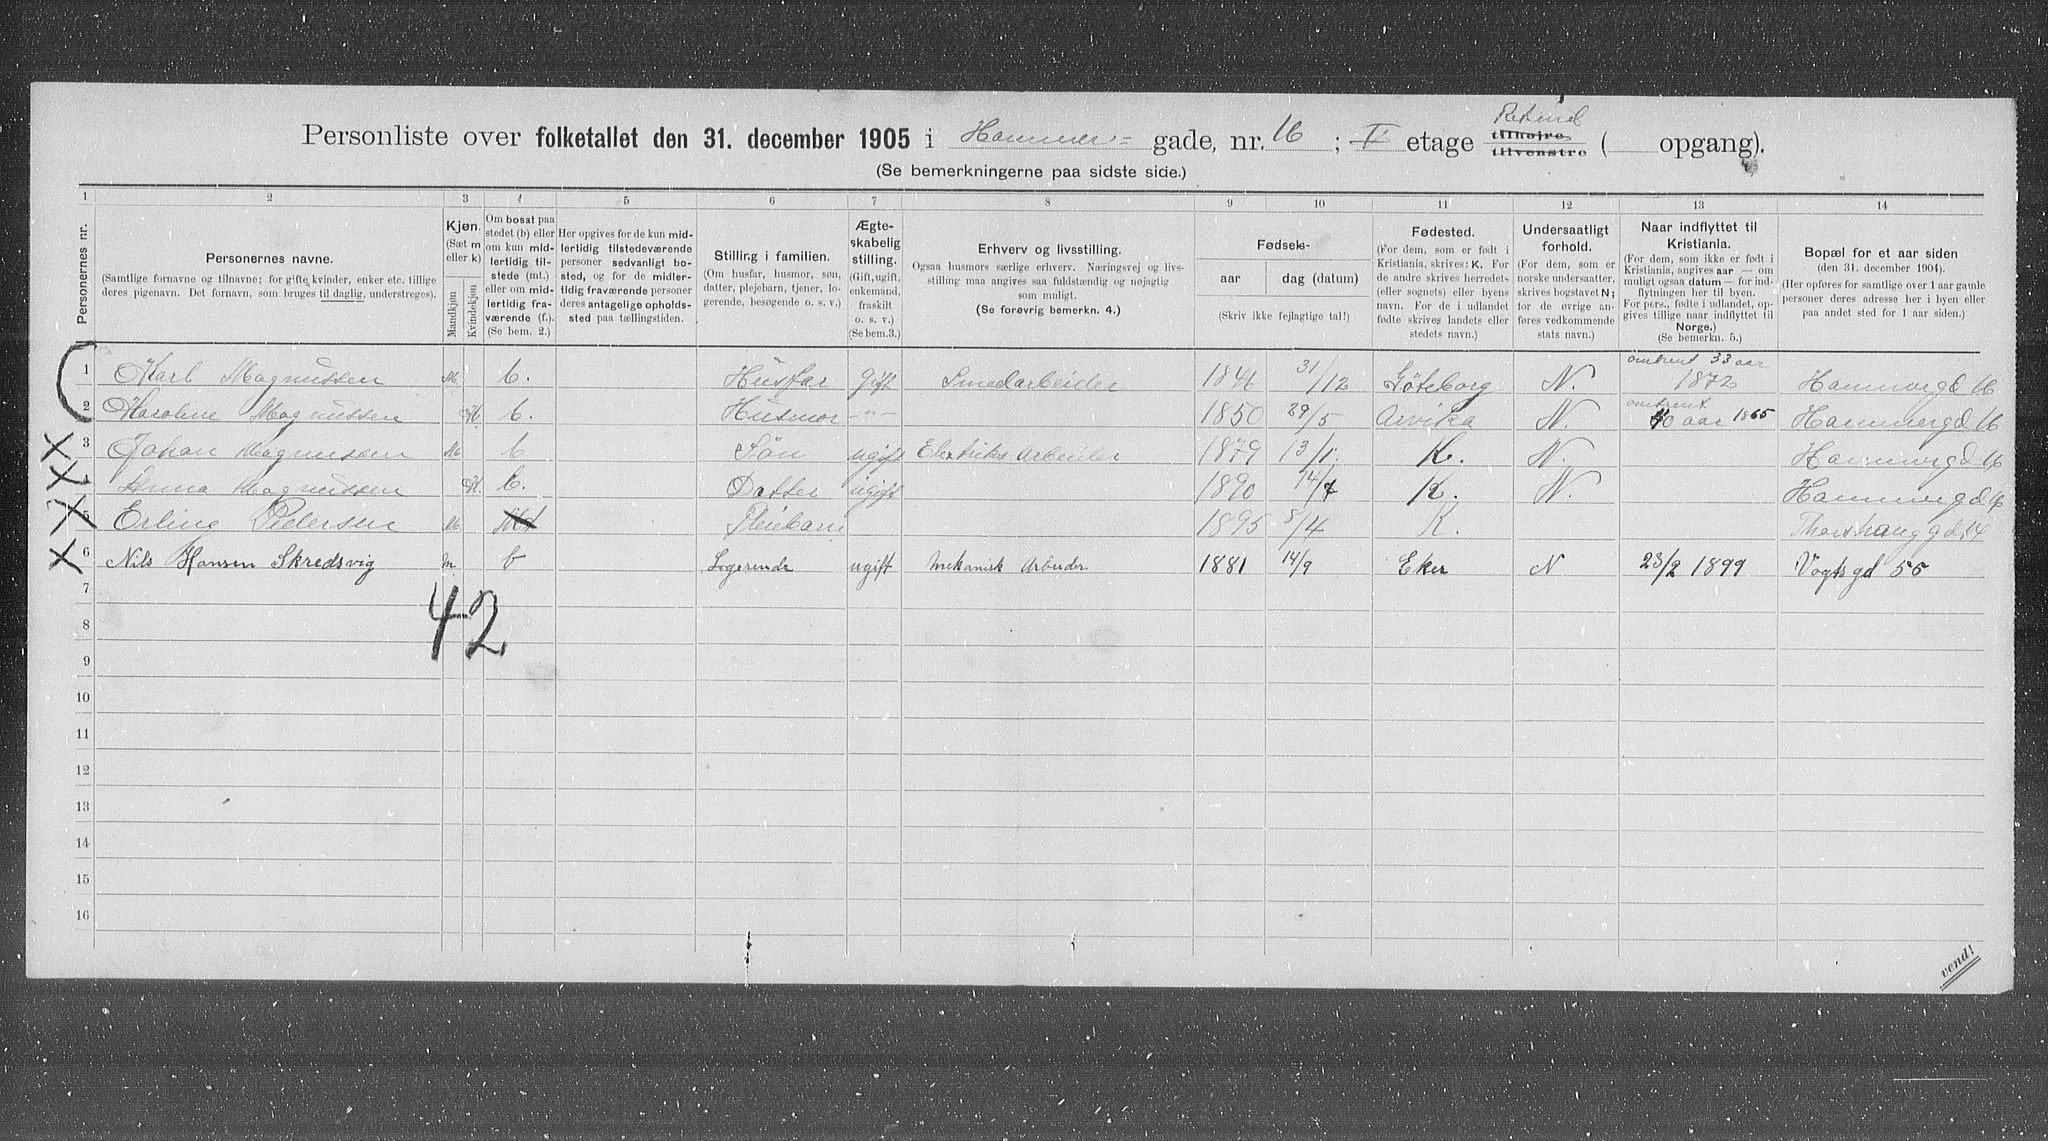 Personliste over folketallet den 31. december 1905 i Hammer- gade, nr. 16; V etage tilhøjre tilvenstre ( opgang).
(Se bemerkningerne paa sidste side.)
1 2 3 4 5 6 7 8 9 10 11 12 13 14
Personernes nr.
Personernes navne.
(Samtlige fornavne og tilnavne; for gifte kvinder, enker etc. tillige
deres pigenavn. Det fornavn, som bruges til daglig, understreges).
Kjøn.
(Sæt m
eller k)
Mandkjøn
Kvindekjøn
Om bosat paa
stedet (b) eller
om kun mid-
lertidig til-
stede (mt.)
eller om mid-
lertidig fra-
værende (f.).
(Se bem. 2.)
Her opgives for de kun mid-
lertidig tilstedeværende
personer sedvanligt bo-
sted, og for de midler-
tidig fraværende personer
deres antagelige opholds-
sted paa tællingstiden.
Stilling i familien.
(Om husfar, husmor, søn,
datter, plejebarn, tjener, lo-
gerende, besøgende o. s. v.)
Ægte-
skabelig
stilling.
(Gift, ugift,
enkemand,
fraskilt
o. s. v.)
(Se bem.3.)
Erhverv og livsstilling.
Ogsaa husmors særlige erhverv. Næringsvej og livs-
stilling maa angives saa fuldstændig og nøjagtig
som muligt.
(Se forøvrig bemerkn. 4.)
Fødsels-
aar dag (datum)
(Skriv ikke fejlagtige tal!)
Fødested.
(For dem, som er født i
Kristiania, skrives: K. For
de andre skrives herredets
(eller sognets) eller byens
navn. For de i udlandet
fødte skrives landets eller
stedets navn.)
Undersaatligt
forhold.
(For dem, som er
norske undersaatter,
skrives bogstavet N;
for de øvrige an-
føres vedkommende
stats navn.)
Naar indflyttet til
Kristiania.
(For dem, som ikke er født i
Kristiania, angives aar — om
muligt ogsaa datum — for ind-
flytningen her til byen.
For pers., fødte i udlandet, op-
gives tillige naar indflyttet til
Norge.)
(Se bemerkn. 5.)
Bopæl for et aar siden
(den 31. december 1904).
(Her opføres for samtlige over 1 aar gamle
personer deres adresse her i byen eller
paa andet sted for 1 aar siden.)
1 Karl Magnussen M. b. Husfar gift Smedarbeider 1846 31/12 Göteborg N. omtrent 33 aar 1872 Hammergd 16
2 Karoline Magnussen K. b. Husmor -"- 1850 29/5 Arvika N. omtrent 40 aar 1865 Hammergd 16
3 Johan Magnussen M b Søn ugift Elektriks Arbeider 1879 13/1. K. N. Hammergd 16
4 Anna Magnussen K. b. Datter ugift 1890 14/7 K. N. Hammergd 16
5 Erling Pedersen M. Pleiebarn 1895 8/4 K. Thorshauggd. 14
6 Nils Hansen Skredsvig m b Logerende ugift Mekanisk Arbeider 1881 14/9 Eker N 23/2 1899 Vogtsgd 55
7
42
8
9
10
11
12
13
14
15
16
vend!